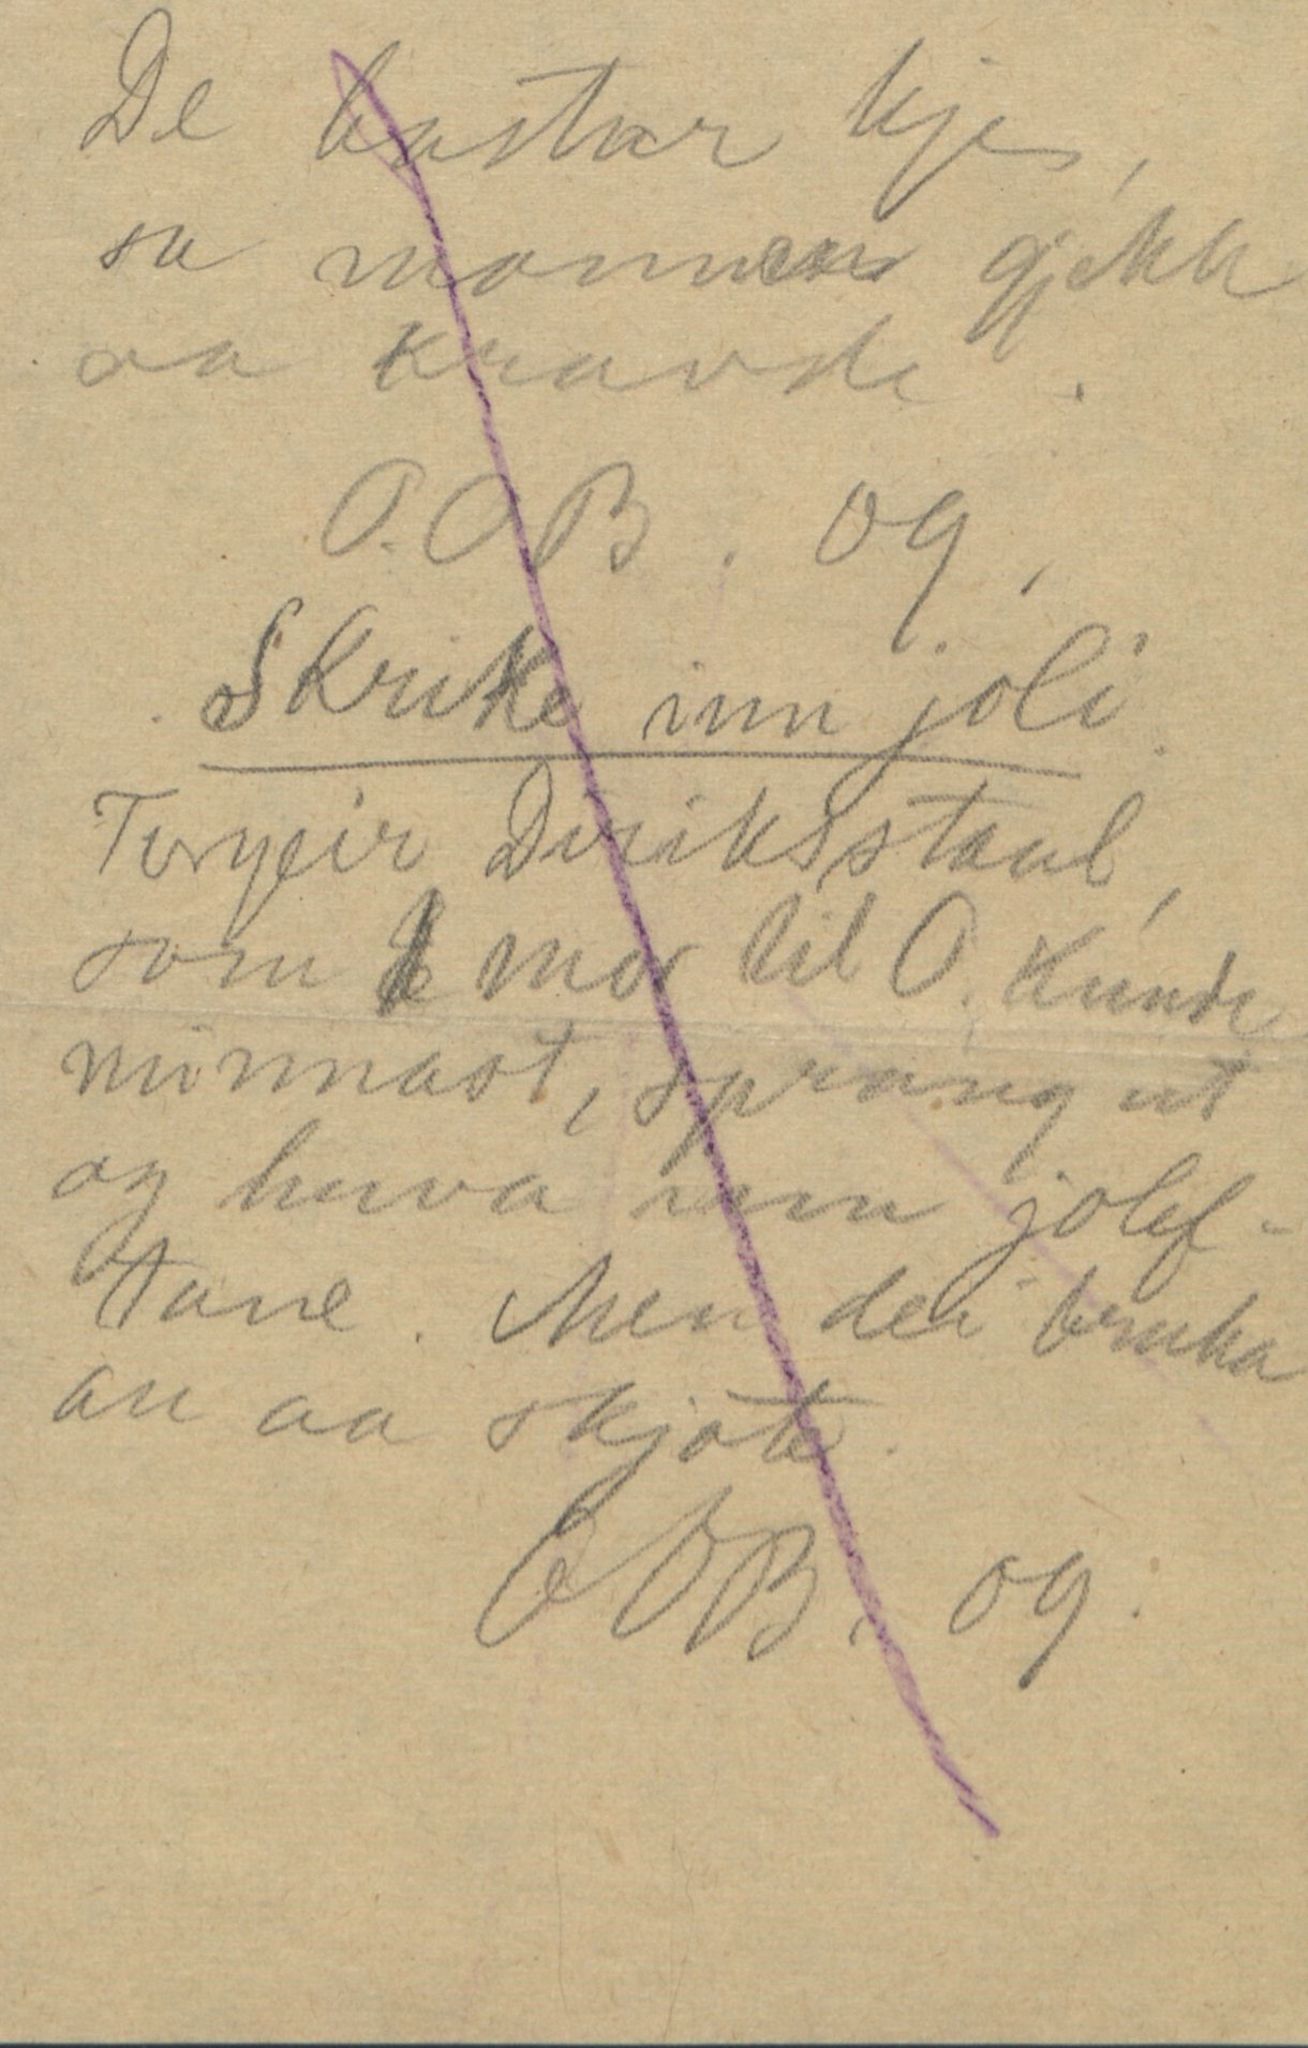 De hastar kje,
sa mannen gjekk
aa kravde.
O.O.B. og,
Skrike inn joli.
Torgeir Diriksstaul,
som mor til O. kunde
minnast, sprang ut
og huva inn jolef-
tane. Men dei bruka
au aa skjote.
O OB. og.